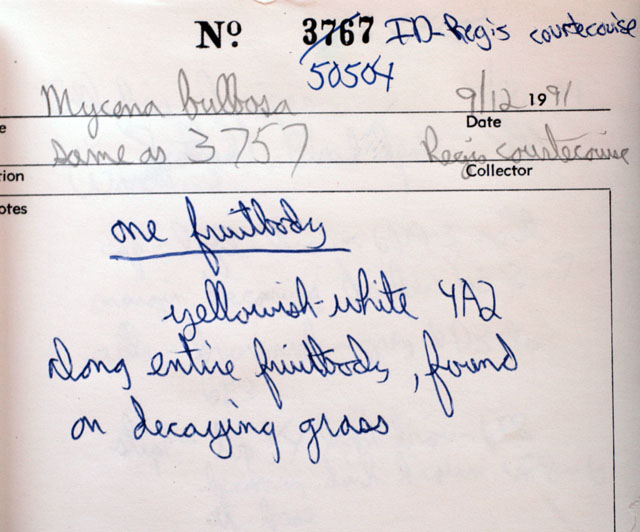 Nº 3767 ID-Regis courtecouise
50504
Mycena bulbosa 9/12 1991
e Date
same as 3757 Regis courtecouise
ion Collector
otes
one fruitbody
yellowish-white 4A2
along entire fruitbody, found
on decaying grass